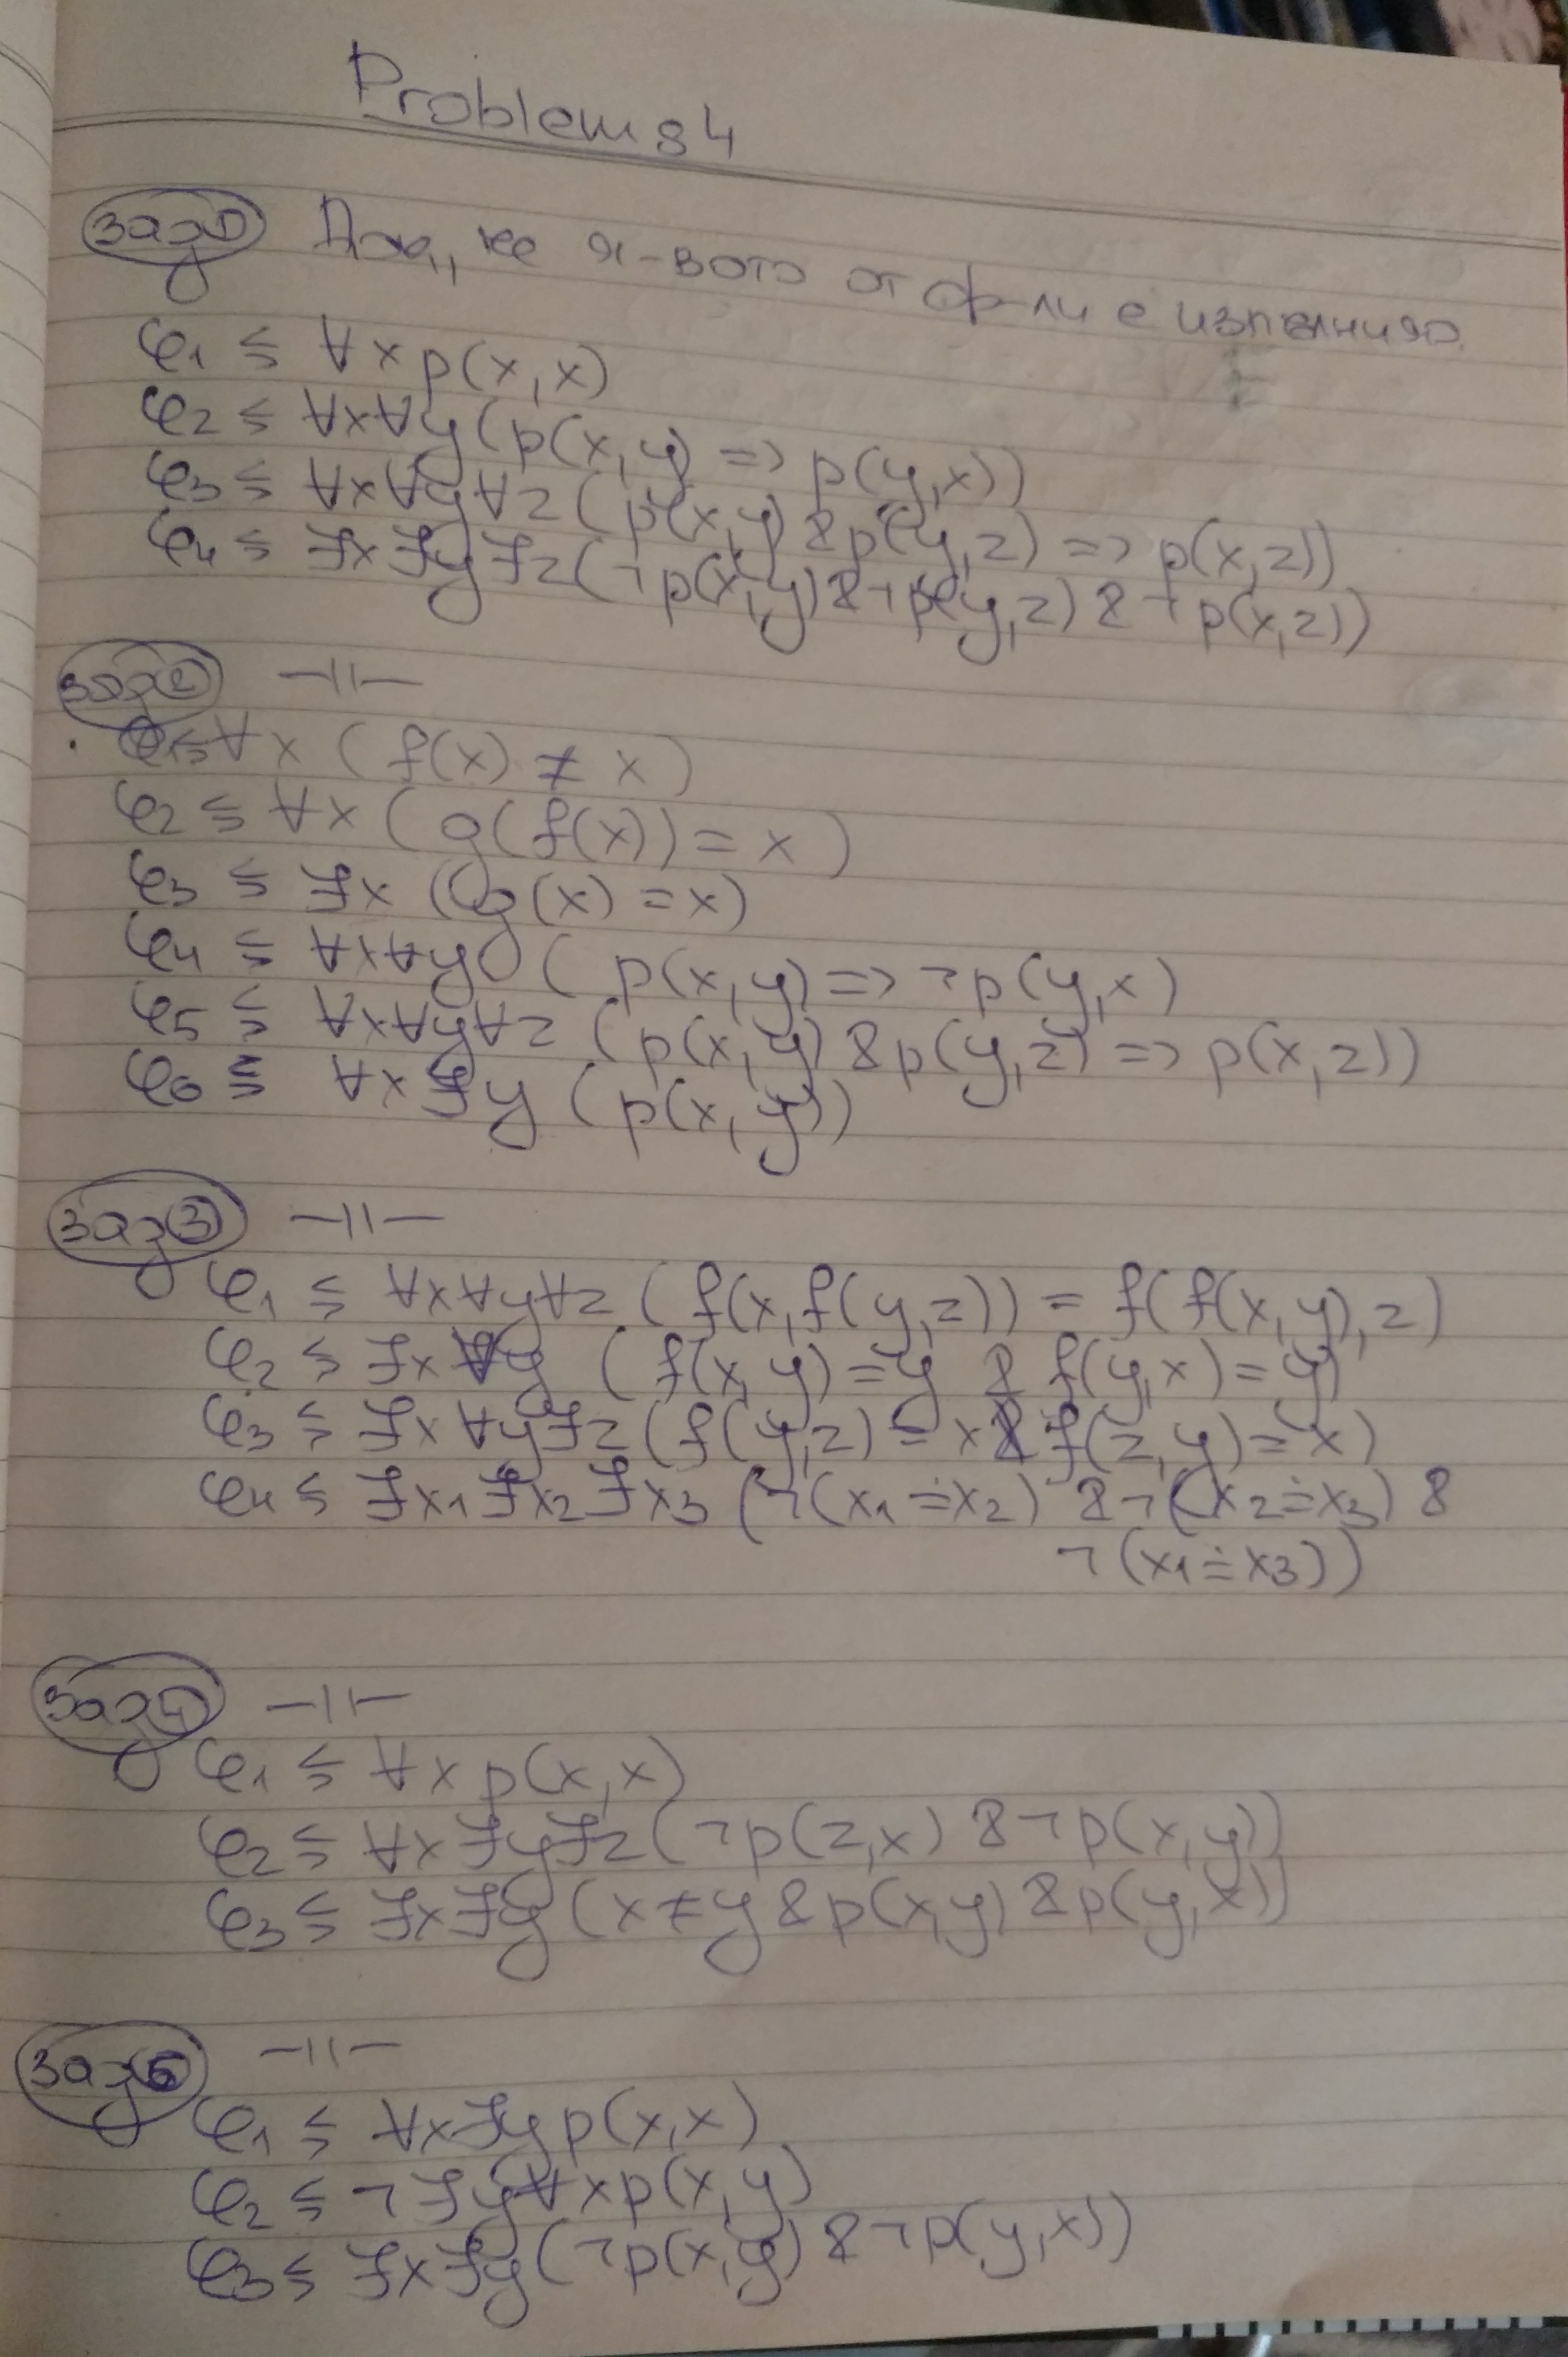 Problems 4
Зад 1 Док, че мн-вото от ф-ли е изпълнимо.
φ1 ≤ ∀x p(x,x)
φ2 ≤ ∀x∀y(p(x,y) => p(y,x))
φ3 ≤ ∀x∀y∀z(p(x,y) & p(y,z) => p(x,z))
φ4 ≤ ∃x∃y∃z(¬p(x,y) & ¬p(y,z) & ¬p(x,z))
Зад 2 —||—
φ1 ≤ ∀x (f(x) ≠ x)
φ2 ≤ ∀x (g(f(x)) = x)
φ3 ≤ ∃x (g(x) = x)
φ4 ≤ ∀x∀y (p(x,y) => ¬p(y,x)
φ5 ≤ ∀x∀y∀z (p(x,y) & p(y,z) => p(x,z))
φ6 ≤ ∀x∃y (p(x,y))
Зад 3 —||—
φ1 ≤ ∀x∀y∀z (f(x,f(y,z)) = f(f(x,y),z)
φ2 ≤ ∃x∀y (f(x,y)=y & f(y,x)=y)
φ3 ≤ ∃x∀y∃z(f(y,z) = x & f(z,y)=x)
φ4 ≤ ∃x1∃x2∃x3 (¬(x1≐x2) & ¬(x2≐x3) &
¬(x1≐x3))
Зад 4 —||—
φ1 ≤ ∀x p(x,x)
φ2 ≤ ∀x∃y∃z(¬p(z,x) & ¬p(x,y))
φ3 ≤ ∃x∃y(x≠y & p(x,y) & p(y,x))
Зад —||—
φ1 ≤ ∀x∃y p(x,x)
φ2 ≤ ¬∃y∀x p(x,y)
φ3 ≤ ∃x∃y(¬p(x,y) & ¬p(y,x))